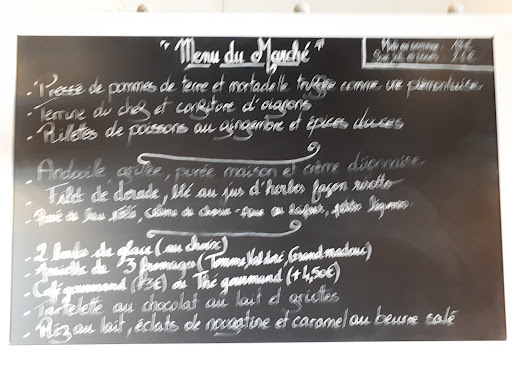 "Menu du Marché"
- Pressé de pommes de terre et mortadelle truffée comme une piémontaise
- Terrine du chef et confiture d'oignons
- Rillettes de poissons au gingembre et épices douces
- Andouille grillée, purée maison et crème dijonnaise
- Filet de dorade, blé au jus d'herbes façon risotto
- de, crème de choux-, petits légumes
- 2 boules de glace (au choix)
- Assiette de 3 fromages (Tomme,, Grand)
- Café gourmand (+3€) ou Thé gourmand (+4,50€)
- Tartelette au chocolat au lait et griottes
- Riz au lait, éclats de nougatine et caramel au beurre salé